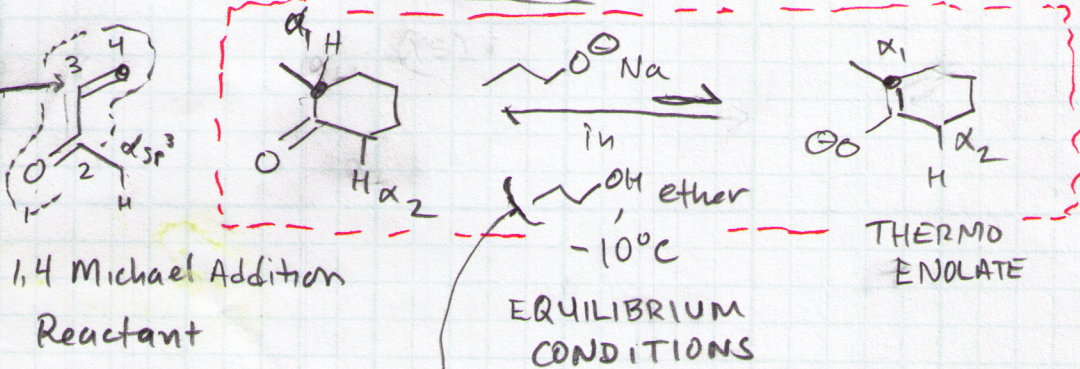 4
3
O
2
α sp³
H
1
1,4 Michael Addition
Reactant
α₁
H
O
H α₂
O⊖ Na
in
OH ether
-10°C
EQUILIBRIUM
CONDITIONS
α₁
⊖O
α₂
H
THERMO
ENOLATE